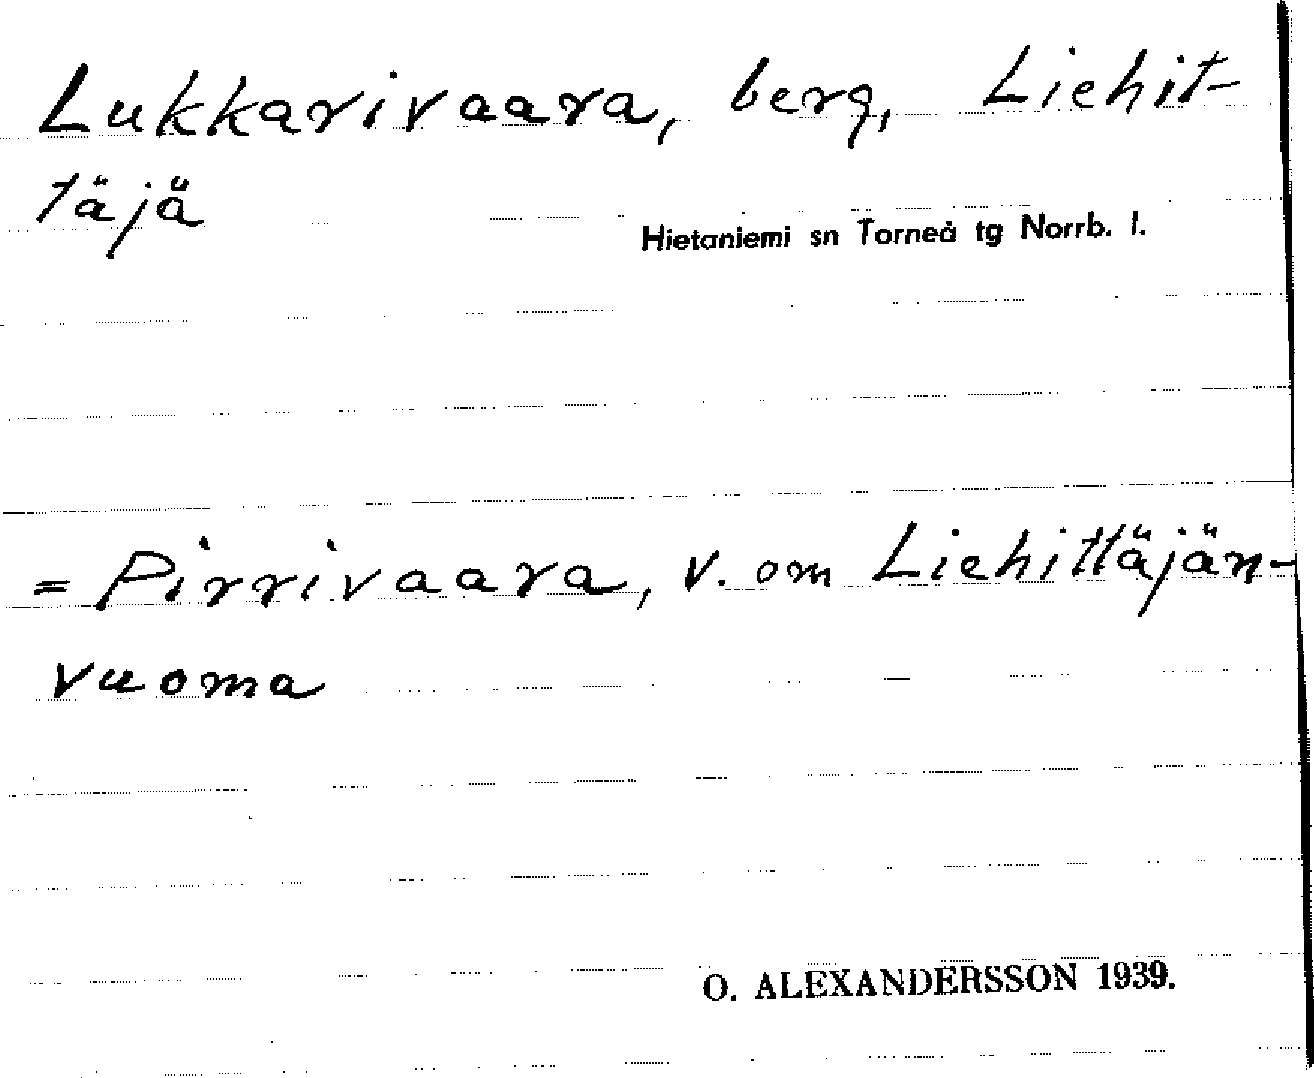 Lukkarivaara, berg, Liehit-
täjä
Hietaniemi sn Torneå tg Norrb. l.
= Pirrivaara, v. om Liehittäjän-
vuoma
O. ALEXANDERSSON 1939.